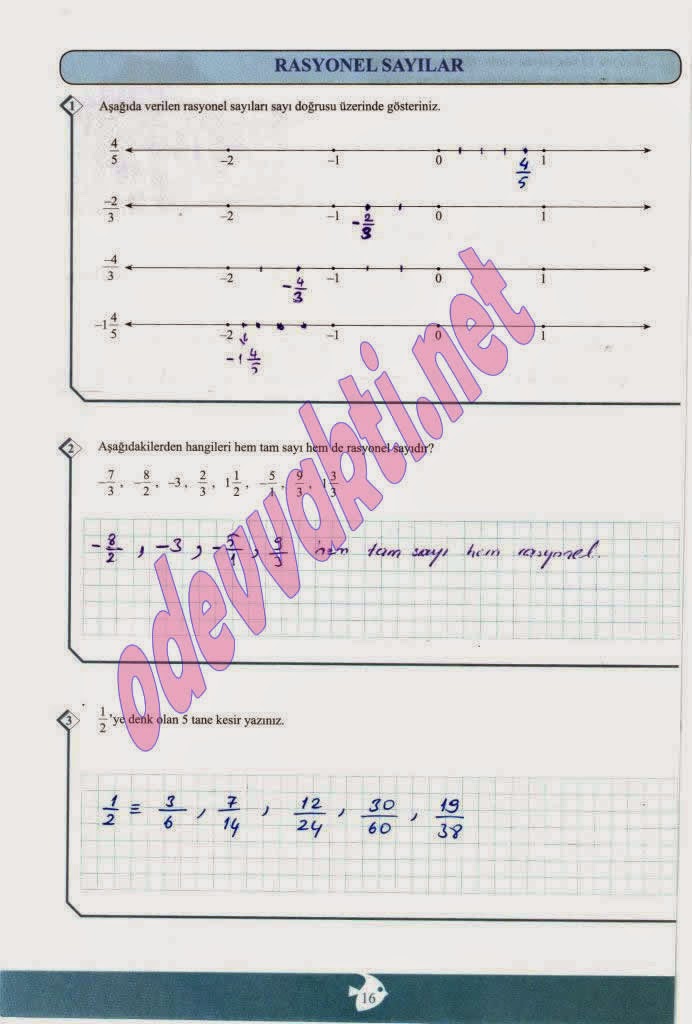 RASYONEL SAYILAR
1 Aşağıda verilen rasyonel sayıları sayı doğrusu üzerinde gösteriniz.
4/5 -2 -1 0 1
4/5
-2/3 -2 -1 0 1
-2/3
-4/3 -2 -1 0 1
-4/3
-1 4/5 -2 -1 0 1
-1 4/5
2 Aşağıdakilerden hangileri hem tam sayı hem de rasyonel sayıdır?
-7/3, -8/2, -3, 2/3, 1 1/2, -5/1, 9/3, 1 3/3
-8/2, -3, -5/1, 9/3 hem tam sayı hem rasyonel.
3 1/2'ye denk olan 5 tane kesir yazınız.
1/2 ≡ 3/6, 7/14, 12/24, 30/60, 19/38
16
odevvakti.net